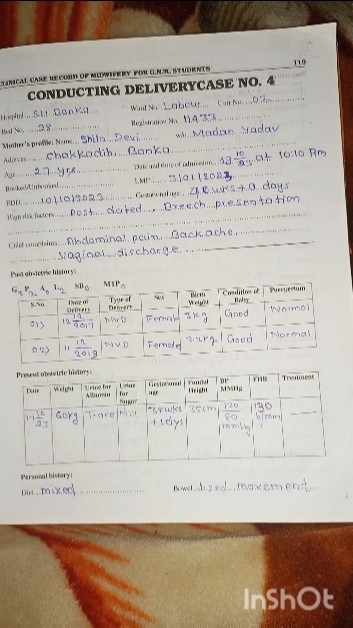 119
CLINICAL CASE RECORD OF MIDWIFERY FOR G.N.M. STUDENTS
CONDUCTING DELIVERYCASE NO. 4
Hospital... Banka Ward No. Labour... Unit No....02
Bed No....28 Registration No.
Mother's profile: Name... Shila Devi w/o Madan Yadav
Address chakkadih, Banka
Age 27 yrs Date and time of admission at 10:10 Am
Booked/Unbooked LMP 3/01/2023
EDD 10/10/2023 Gestational age days
High risk factors Post dated, Breech presentation
Chief complaints Abdominal pain, Backache,
vaginal discharge
Past obstetric history:
G3 P2 A0 L2 SB0 MTP0
S.No. Date of Delivery Type of Delivery Sex Birth Weight Condition of Baby Puerperium
01) 12/12/2017 NVD Female 3kg Good Normal
02) 11/12/2019 NVD Female 3.2kg Good Normal
Present obstetric history:
Date Weight Urine for Albumin Urine for Sugar Gestational age Fundal Height BP MMHg FHR Treatment
60kg Trace Nil +1days 35cm 120/80 mmhg 130
Personal history:
Diet...mixed Bowel movement
InShOt